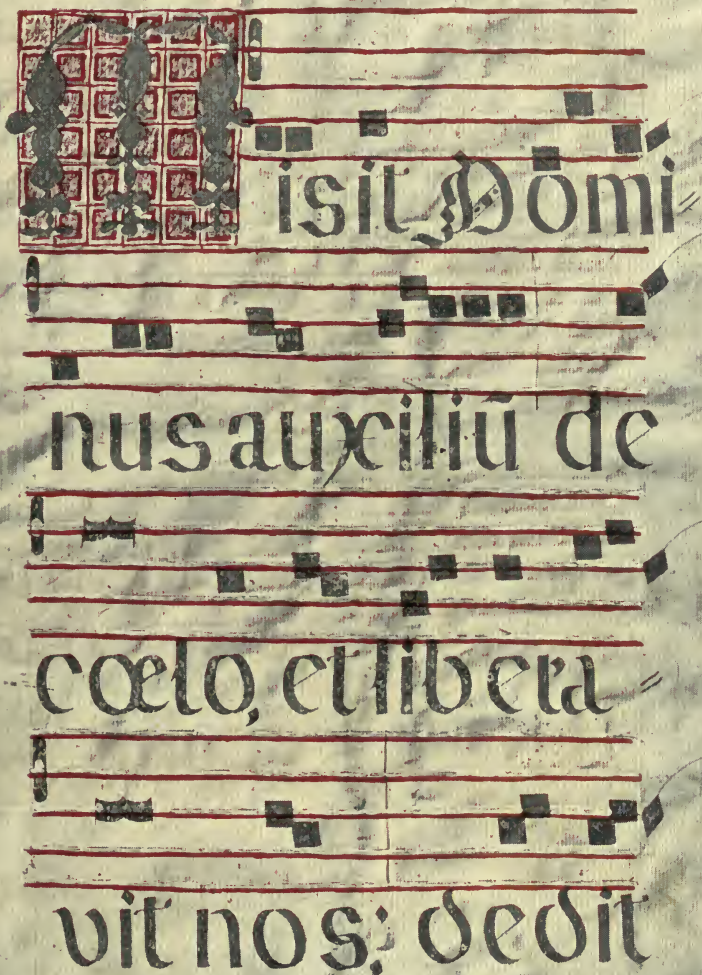 Misit Domi=
nus auxiliū de
cœlo, et libera=
vit nos; dedit